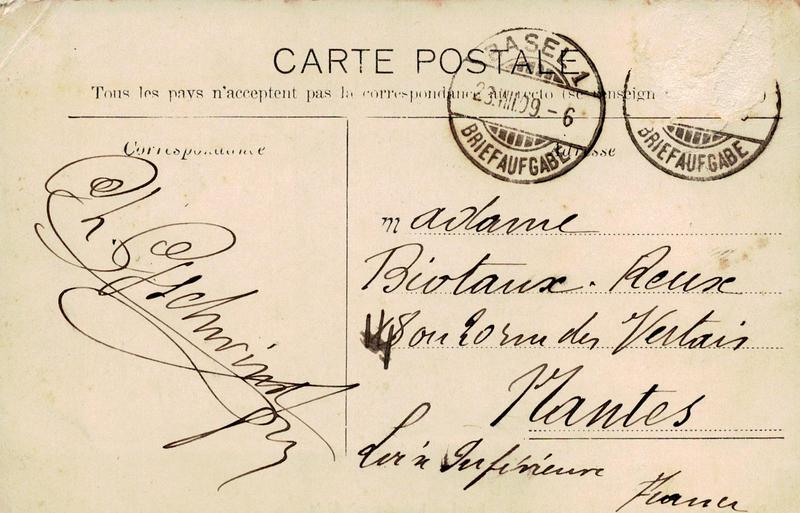 CARTE POSTALE
Tous les pays n'acceptent pas la correspondance au recto (se renseign
Correspondance
Adresse
BASEL 1
23.VIII.09 - 6
BRIEFAUFGABE
BRIEFAUFGABE
Madame
Biotaux. Reux
18 ou 20 rue des Vertais
Nantes
Loire Inférieure
France
Ch. Gschwind